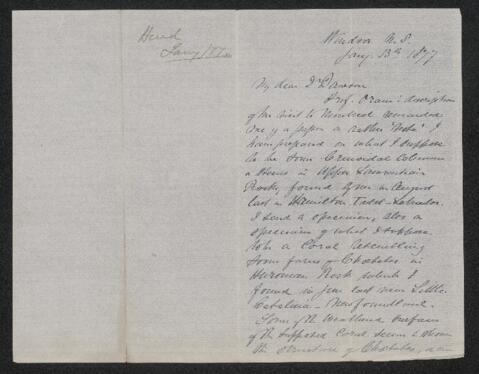 Windsor N.S.
Jany. 13th 1877
My dear Dr Dawson
Prof. Oram's description
of his visit to Montreal reminded
me of a paper or rather "Note" I
have prepared on what I suppose
to be some Crinoidal Columns
or Stems in Upper Laurentian
Rocks, found by me in August
last in Hamilton Inlet - Labrador.
I send a specimen, also a
specimen of what I suppose
to be a Coral resembling
some forms of Chaetetes in
Huronian Rock which I
found in June last near Little
Catalina - Newfoundland.
Some of the weathered surfaces
of the supposed Coral seem to show
the structure of Chaetetes,